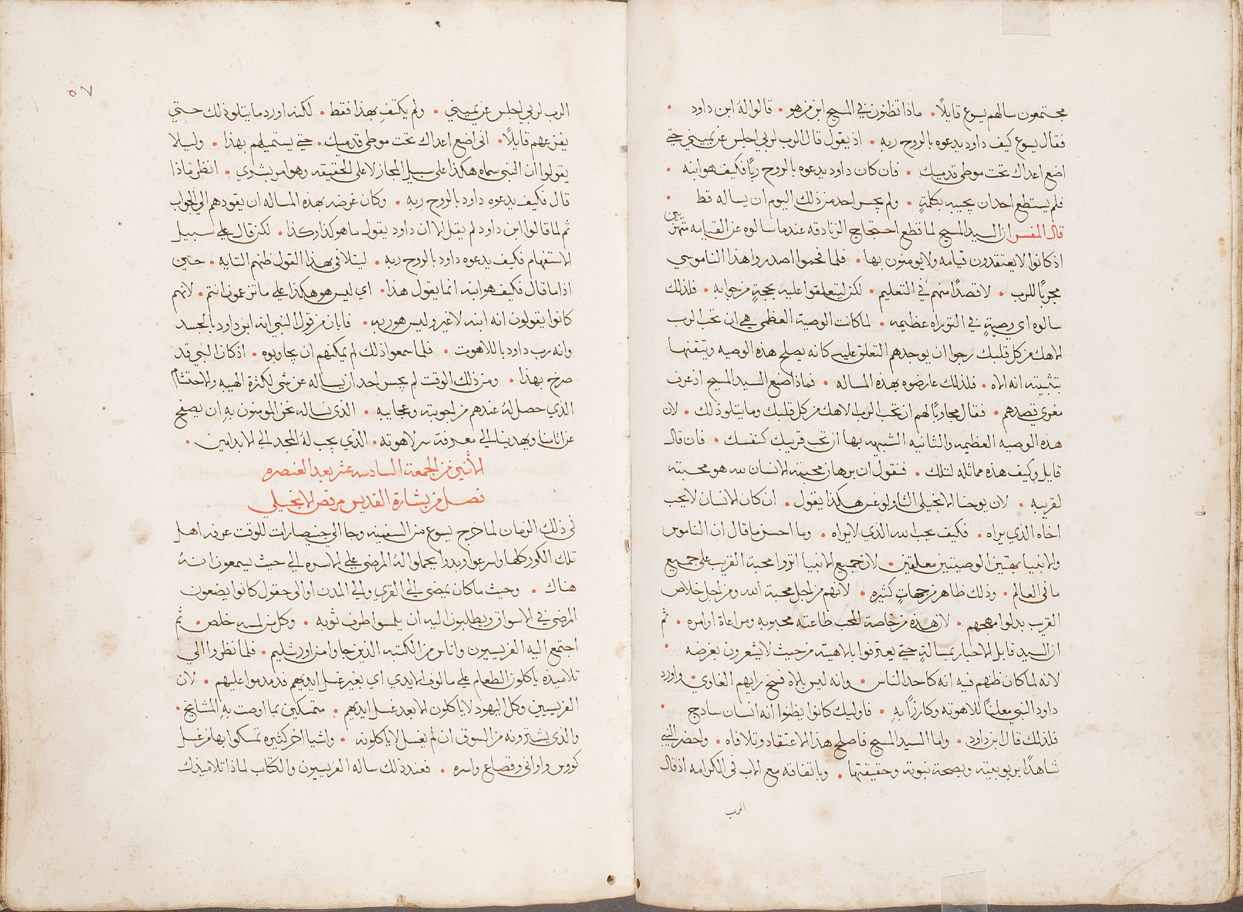 مجتمعون سالهم يسوع قايلًا • ماذا تظنون في المسيح ابن من هو • قالوا له ابن داود •
فقال يسوع كيف داود يدعوه بالروح ربه • اذ يقول قال الرب لربي اجلس عن يميني حتى
اضع اعداك تحت موطى قدميك • فان كان داود يدعوه بالروح ربًا فكيف هو ابنه •
فلم يستطع احد ان يجيبه بكلمةٍ • ولم يجسر احد من ذلك اليوم ان يساله قط •
قال المفسر ان السيد المسيح لما قطع احتجاج الزنادقه عندما سالوه عن القيامه
اذ كانوا لا يعتقدون قيامه ولا يومنون بها • فلما اصدروا هذا الناموسي
مجربًا للرب • لا قصدًا منهم في التعليم • لكن ليتعلقوا عليه بحجةٍ من جوابه • فلذلك
سالوه اي وصيةٍ في التوراه عظيمه • لما كانت الوصية العظمى هي ان تحب الرب
الاهك من كل قلبك رجوا ان يوجدهم التعلق عليه كانه يصلح هذه الوصيه
بتثبيته انه الاه • فلذلك عارضوه بهذه المساله • فماذا صنع السيد المسيح اذ عرف
مغزى قصدهم • فقال مجاوبًا لهم ان تحب الرب الاهك من كل قلبك وما يتلو ذلك • لان
هذه الوصيه العظيمه والثانيه الشبيهه بها ان تحب قريبك كنفسك • فان قال
قايل وكيف هذه مماثله لتلك • فنقول ان برهان محبة الانسان لله هو محبته
لقريبه • لان يوحنا الانجيلي الثاولوغس هكذا يقول • ان كان الانسان لا يحب
اخاه الذي يراه • فكيف يحب الله الذي لا يراه • وما احسن ما قال ان الناموس
والانبيا بهتين الوصيتين معلقين • لان جميع الانبيا اثروا محبة القريب على جميع
ما في العالم • وذلك ظاهر من جهاتٍ كثيره • لانهم من اجل محبة الله ومن اجل خلاص
القريب بذلوا مهجهم • لان هذه من خاصة المحب طاعته محبوبه ومراعاة اوامره • ثم
ان السيد قابل الاحبار بمسالةٍ حتى يعترفوا بلاهيته من حيث لا يشعرون بغرضه •
لانه لما كان ظنهم فيه انه كاحد الناس • وانه ليس بالاه فسخ رايهم الغاوي • واورد
داود النبي معلنًا للاهوته وكارزًا به • فاوليك كانوا يظنوا انه انسان سادج •
فلذلك قال ابن داود • واما السيد المسيح فاصلح هذا الاعتقاد وتلافاه • واحضر النبي
شاهدًا بربوبيته وبصحة نبوته وحقيقتها • وباتفاقه مع الاب في الكرامه اذ قال
الرب
٥٧
الرب لربي اجلس عن يميني • ولم يكتف بهذا فقط • لكنه اورد ما يتلو ذلك حتى
يفزعهم قايلًا • اني اضع اعداك تحت موطى قدميك • حتى يستميلهم بهذا • وليلا
يقولوا ان النبي سماه هكذا على سبيل المجاز لا على الحقيقه وهو بشري • انظر ماذا
قال فكيف يدعوه داود بالروح ربه • وكان غرضه بهذه المساله ان يقودهم الى الجواب
ثم لما قالوا ابن داود لم يقل الا ان داود يقول ما هو كذا وكذا • لكن قال على سبيل
الاستفهام فكيف يدعوه داود بالروح ربه • ليتلافى بهذا القول ظنهم التايه • حتى
اذا ما قال فكيف هو ابنه انما يقول هذا • اي ليس هو هكذا على ما تزعموا انتم • لانهم
كانوا يقولون انه ابنه لا غير وليس هو ربه • فابان من قول النبي انه ابن داود بالجسد
وانه رب داود باللاهوت • فلما سمعوا ذلك لم يمكنهم ان يجاوبوه • اذ كان النبي قد
صرخ بهذا • ومن ذلك الوقت لم يجسر احد ان يساله عن شي لكثرة الهيبه والاحتشام
الذي حصل له عندهم من اجوبته وعجايبه • الذي نساله نحن المومنون به ان يصفح
عن اثامنا ويهدينا الى معرفة سر لاهوته • الذي يجب له المجد الى الابد امين •
الاثنين من الجمعة السادسه عشر بعد العنصره
فصل من بشارة القديس مرقص الانجيلي
في ذلك الزمان لما خرج يسوع من السفينه وجا الى جنيصارات للوقت عرفه اهل
تلك الكور كلها واسرعوا وبدوا يحملوا له المرضى على الاسره الى حيث يسمعون انه
هناك • وحيث ما كان يمضي الى القرى والى المدن او الى حقول كانوا يضعون
المرضى في الاسواق ويطلبون اليه ان يلمسوا طرف ثوبه • وكل من لمسه خلص • ثم
اجتمع اليه الفريسيون واناس من الكتبه الذين جاوا من اورشليم • فلما نظروا الى
تلاميذه ياكلون الطعام على مالوف الايدي اي بغير غسل ايديهم فذمدموا عليهم • لان
الفريسيين وكل اليهود لا ياكلون الا بعد غسل ايديهم • متمسكين بما اوصت به المشايخ •
والذي يشترونه من السوق ان لم يغسل لا ياكلونه • واشيا اخر كثيره تمسكوا بها من غسل
كووس واواني وقصاع واسره • فعند ذلك ساله الفريسيون والكتاب لماذا تلاميذك